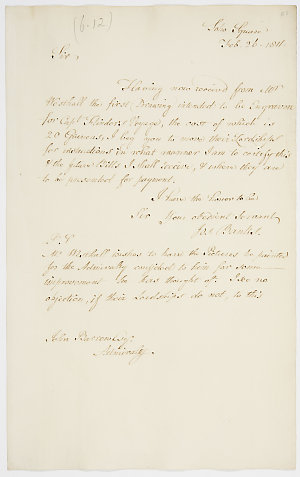 (6.12)
Soho Square
Feb. 26. 1811
Sir
Having now received from Mr
Westall the first Drawing intended to be Engraven
for Capt Flinders's Voyage, the cost of which is
20 Guineas, I beg you to move their Lordships
for instructions in what manner I am to certify this
& the future Bills I shall receive, & where they are
to be presented for payment.
I have the honor to be
Sir Your obedient Servant
Jos: Banks.
P.S.
Mr Westall wishes to have the Pictures he painted
for the Admiralty confided to him for some
improvement he has thought of. I see no
objection, if their Lordships do not, to this
John Barrow Esqr
Admiralty.